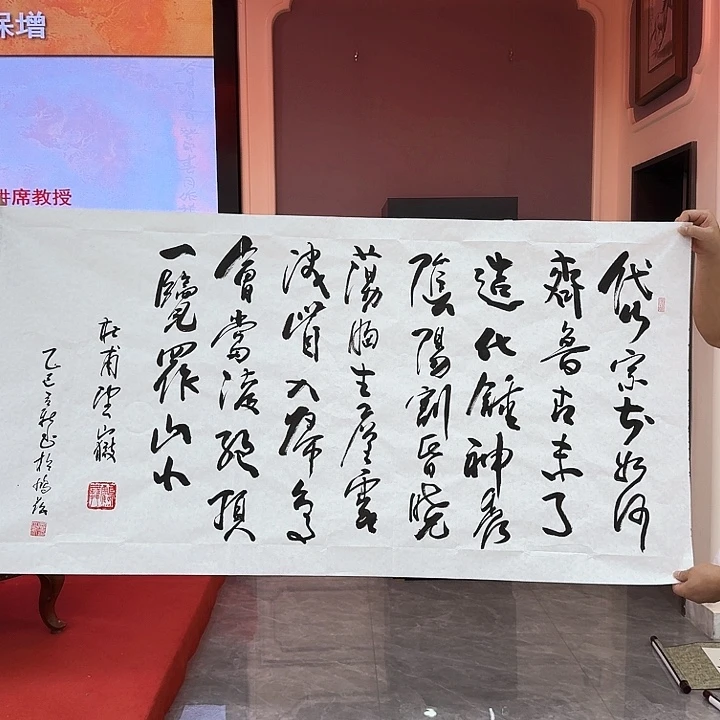 保增
讲席教授
岱宗夫如何
齊魯青未了
造化鍾神秀
陰陽割昏曉
蕩胸生層雲
決眥入歸鳥
會當凌絕頂
一覽眾山小
杜甫望嶽
乙巳